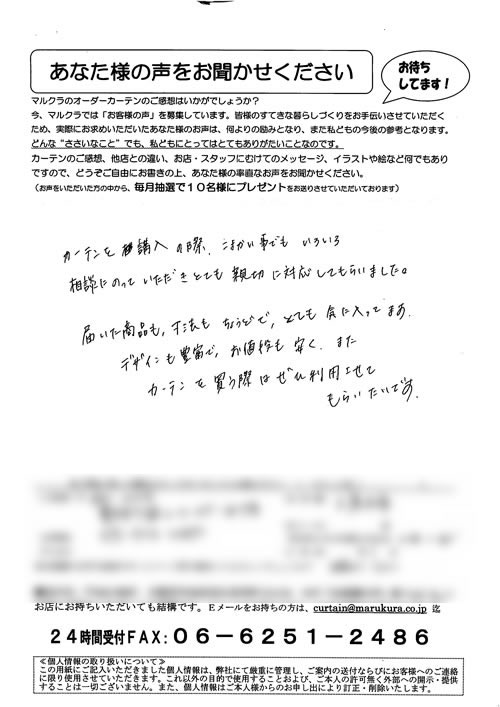 あなた様の声をお聞かせください
お待ち
してます！
マルクラのオーダーカーテンのご感想はいかがでしょうか？
今、マルクラでは「お客様の声」を募集しています。皆様のすてきな暮らしづくりをお手伝いさせていただく
ため、実際にお求めいただいたあなた様のお声は、何よりの励みとなり、また私どもの今後の参考となります。
どんな“ささいなこと”でも、私どもにとってはとてもありがたいことなのです。
カーテンのご感想、他店との違い、お店・スタッフにむけてのメッセージ、イラストや絵など何でもあり
ですので、どうぞご自由にお書きの上、あなた様の率直なお声をお聞かせください。
（お声をいただいた方の中から、毎月抽選で１０名様にプレゼントをお送りさせていただいております）
カーテンを購入の際、こまかい事でもいろいろ
相談にのっていただきとても親切に対応してもらいました。
届いた商品も、寸法もちょうどで、とても気に入ってます。
デザインも豊富で、お価格も安く、また
カーテンを買う際はぜひ利用させて
もらいたいです。
お店にお持ちいただいても結構です。Ｅメールをお持ちの方は、curtain@marukura.co.jp 迄
２４時間受付ＦＡＸ：０６－６２５１－２４８６
≪個人情報の取り扱いについて≫
この用紙にご記入いただきました個人情報は、弊社にて厳重に管理し、ご案内の送付ならびにお客様へのご連絡
に限り使用させていただきます。これ以外の目的で使用することおよび、ご本人の許可無く外部への開示・提供
することは一切ございません。また、個人情報はご本人様からのお申し出により訂正・削除いたします。